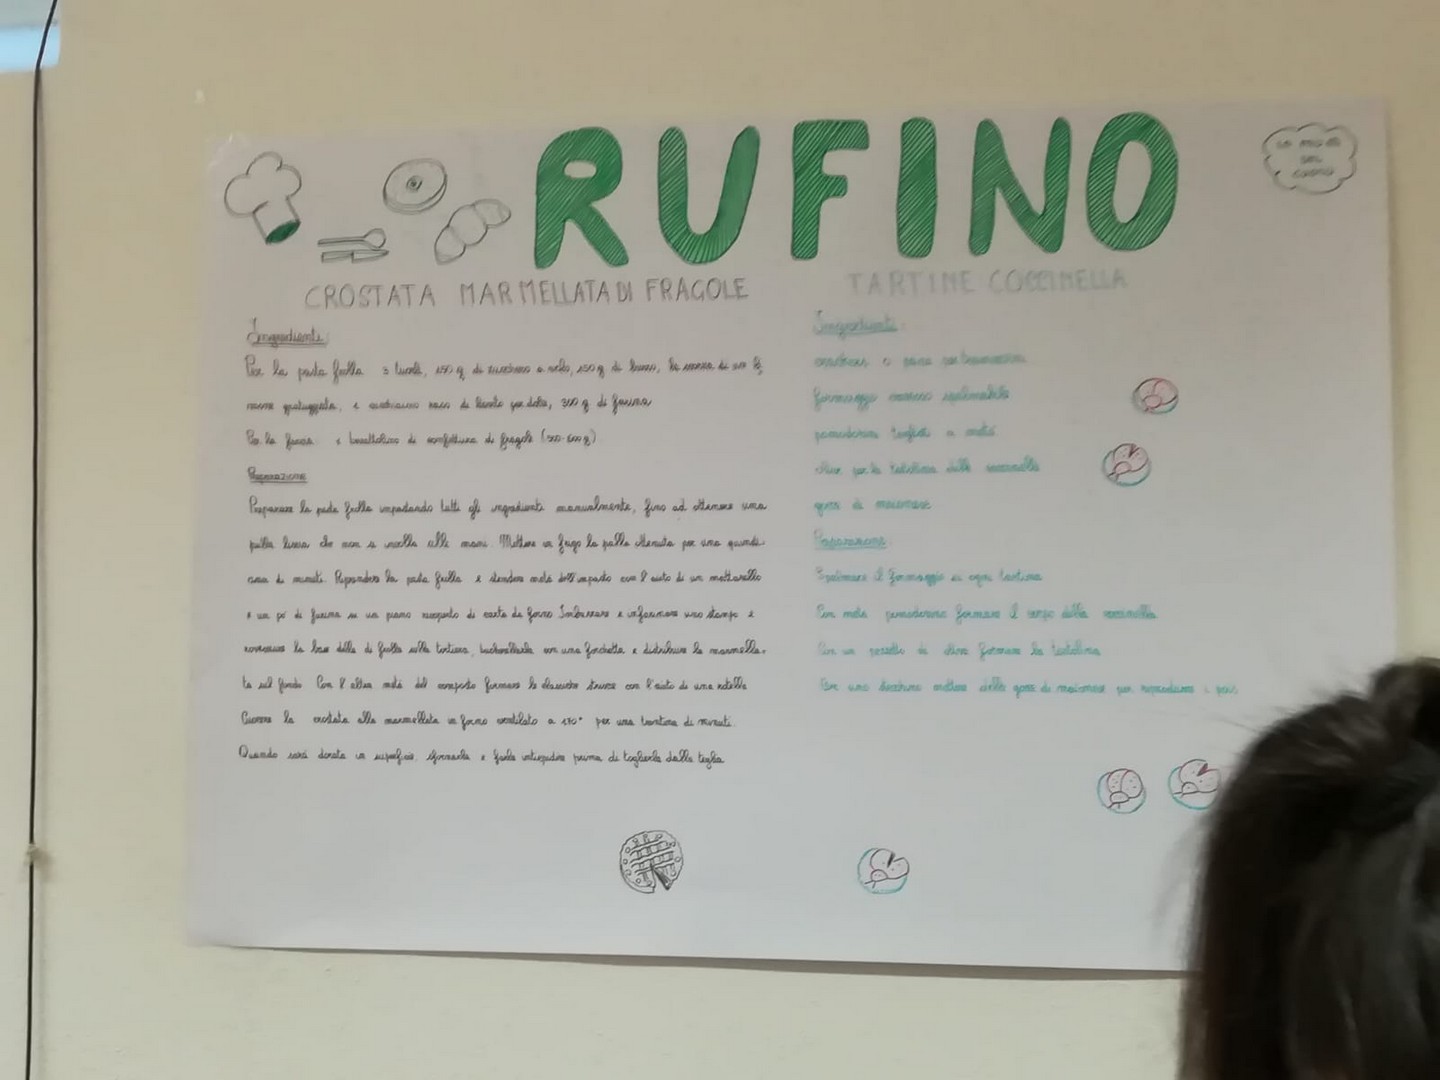 RUFINO
CROSTATA MARMELLATA DI FRAGOLE
Ingredienti:
Per la pasta frolla 3 tuorli, 150 g di zucchero a velo, 150 g di burro, la scorza di un li
mone grattugiata, 1 cucchiaino raso di lievito per dolci, 300 g di farina
Per la farcia 1 barattolino di confettura di fragole (500-600g)
Preparazione
Preparare la pasta frolla impastando tutti gli ingredienti manualmente, fino ad ottenere una
palla liscia che non si incolla alle mani. Mettere in frigo la palla ottenuta per una quindi-
cina di minuti. Riprendere la pasta frolla e stendere metà dell'impasto con l'aiuto di un mattarello
e un po' di farina su un piano ricoperto di carta da forno Imburrare e infarinare uno stampo e
rovesciare la base della di frolla sulla tortiera, bucherellarla con una forchetta e distribuire la marmella-
ta sul fondo Con l'altra metà del composto formare le classiche strisce con l'aiuto di una rotella
Cuocere la crostata alla marmellata in forno ventilato a 170° per una trentina di minuti.
Quando sarà dorata in superficie, sfornarla e farla intiepidire prima di toglierla dalla teglia
TARTINE COCCINELLA
Ingredienti:
crackers o pane per tramezzini
formaggio cremoso spalmabile
pomodorini tagliati a metà
olive per la testolina della coccinella
gocce di maionese
Preparazione
Spalmare il formaggio su ogni tartina
Con metà pomodorino formare il corpo della coccinella
Con un pezzetto di oliva formare la testolina
Con uno stecchino mettere delle gocce di maionese per riprodurre i pois